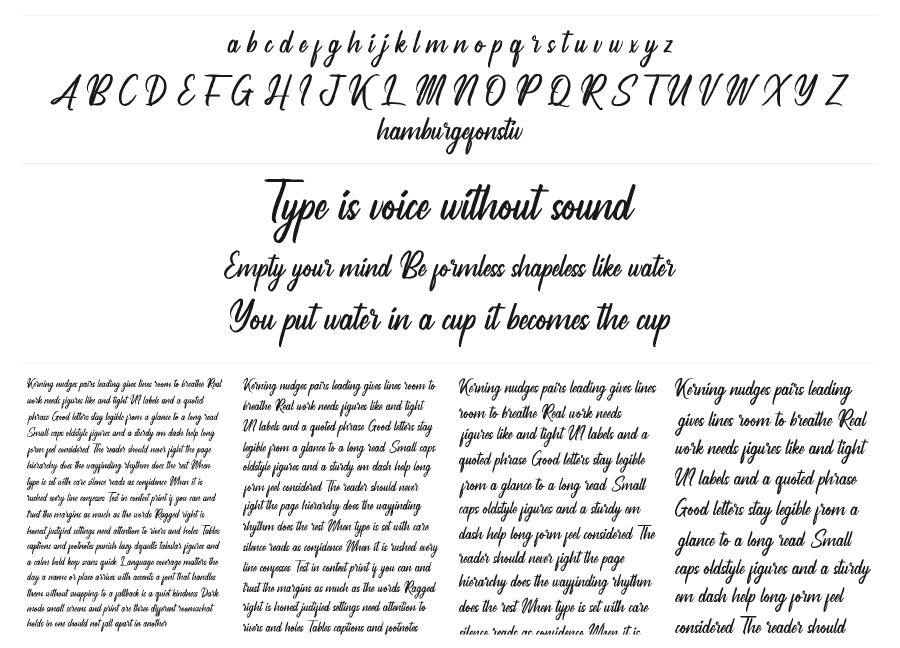 a b c d e f g h i j k l m n o p q r s t u v w x y z
A B C D E F G H I J K L M N O P Q R S T U V W X Y Z
hamburgefonstiv
Type is voice without sound
Empty your mind Be formless shapeless like water
You put water in a cup it becomes the cup
Kerning nudges pairs leading gives lines room to breathe Real
work needs figures like and tight UI labels and a quoted
phrase Good letters stay legible from a glance to a long read
Small caps oldstyle figures and a sturdy em dash help long
form feel considered The reader should never fight the page
hierarchy does the wayfinding rhythm does the rest When
type is set with care silence reads as confidence When it is
rushed every line confesses Test in context print if you can and
trust the margins as much as the words Ragged right is
honest justified settings need attention to rivers and holes Tables
captions and footnotes punish lazy defaults tabular figures and
a calm bold keep scans quick Language coverage matters the
day a name or place arrives with accents a font that handles
them without swapping to a fallback is a quiet kindness Dark
mode small screens and print are three different rooms what
holds in one should not fall apart in another
Kerning nudges pairs leading gives lines room to
breathe Real work needs figures like and tight
UI labels and a quoted phrase Good letters stay
legible from a glance to a long read Small caps
oldstyle figures and a sturdy em dash help long
form feel considered The reader should never
fight the page hierarchy does the wayfinding
rhythm does the rest When type is set with care
silence reads as confidence When it is rushed every
line confesses Test in context print if you can and
trust the margins as much as the words Ragged
right is honest justified settings need attention to
rivers and holes Tables captions and footnotes
Kerning nudges pairs leading gives lines
room to breathe Real work needs
figures like and tight UI labels and a
quoted phrase Good letters stay legible
from a glance to a long read Small
caps oldstyle figures and a sturdy em
dash help long form feel considered The
reader should never fight the page
hierarchy does the wayfinding rhythm
does the rest When type is set with care
silence reads as confidence When it is
Kerning nudges pairs leading
gives lines room to breathe Real
work needs figures like and tight
UI labels and a quoted phrase
Good letters stay legible from a
glance to a long read Small
caps oldstyle figures and a sturdy
em dash help long form feel
considered The reader should